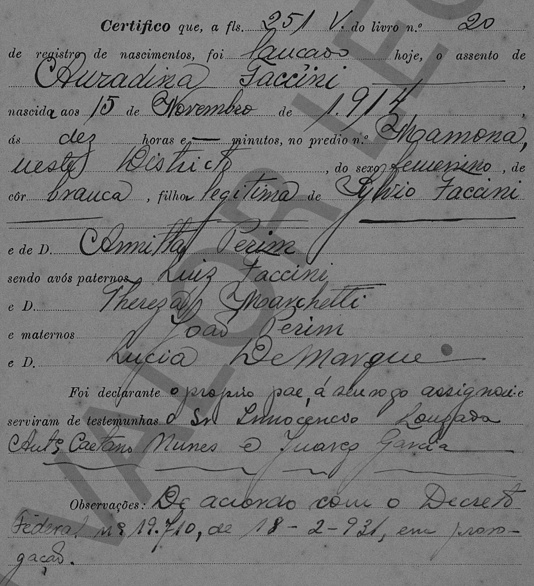 Certifico que, a fls. 251 V. do livro n.º 20
de registro de nascimentos, foi lançado hoje, o assento de
Auzadina Faccini,
nascida aos 15 de Novembro de 1914
ás dez horas e — minutos, no predio n.º Mamona,
neste Districto, do sexo femenino, de
côr branca, filha legitima de Sylvio Faccini
e de D. Annitta Perim
sendo avós paternos Luiz Faccini
e D. Thereza Marchetti
e maternos João Perim
e D. Lucia DeMarque
Foi declarante o proprio pae, á seu rogo assignou e
serviram de testemunhas o Sr. Innocencio Louzada
Antº Caetano Nunes e Juarez Garcia
Observações: De acordo com o Decreto
Féderal nº 19.710, de 18-2-931, em prorogação.
VALOR LEG